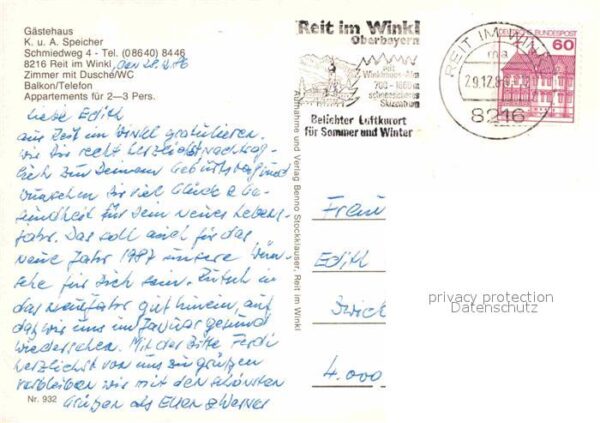 Gästehaus
K. u. A. Speicher
Schmiedweg 4 - Tel. (08640) 8446
8216 Reit im Winkl, den 28.12.86
Zimmer mit Dusche/WC
Balkon/Telefon
Appartements für 2—3 Pers.
Liebe Edith
aus Reit im Winkel gratulieren
wir Dir recht herzlichst nachträg-
lich zu Deinem Geburtstag und
wünschen Dir viel Glück & Ge-
sundheit für Dein neues Lebens-
jahr. Das soll auch für das
neue Jahr 1987 unsere Wün-
sche für Dich sein. Rutsch in
das neue Jahr gut hinein, auf
daß wir uns im Januar gesund
wiedersehen. Mit der Bitte Ferdi
herzlichst von uns zu grüßen
verbleiben wir mit den schönsten
Grüßen als Ellen & Werner
Nr. 932
Aufnahme und Verlag Benno Stockklauser, Reit im Winkl
Reit im Winkl
Oberbayern
mit
Winklmoos-Alm
700-1860m
schneesicheres
Skizentrum
Beliebter Luftkurort
für Sommer und Winter
REIT IM WINKL
29.12.8
8216
DEUTSCHE BUNDESPOST
60
Frau
Edith
4.000
privacy protection
Datenschutz